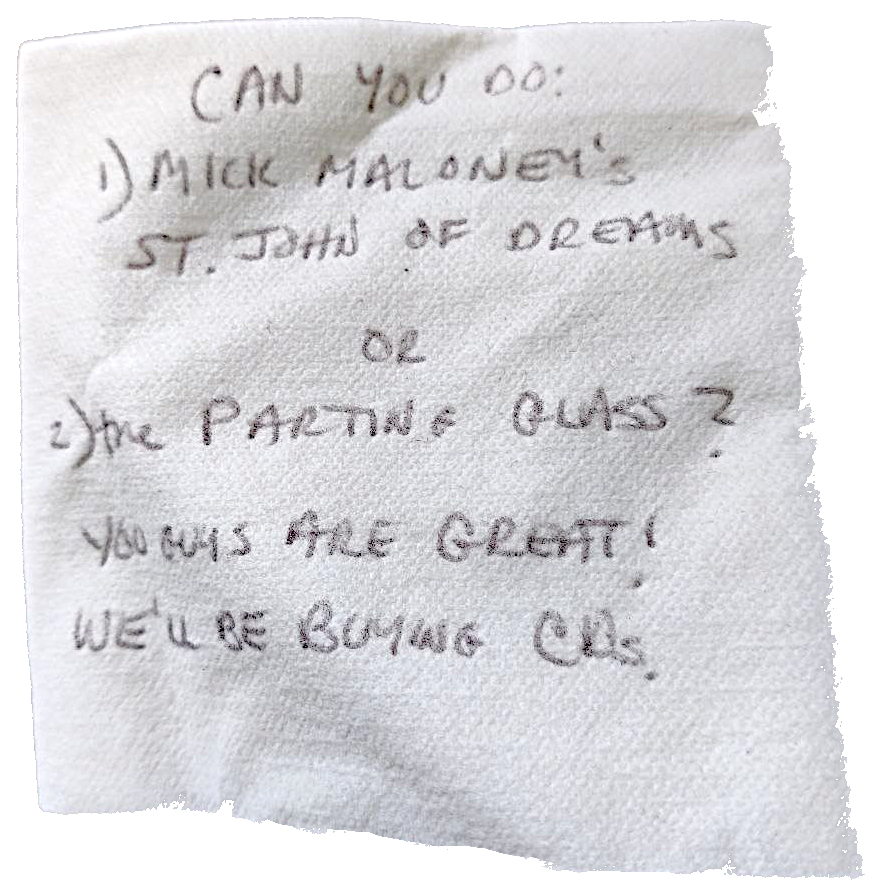 CAN YOU DO:
1) MICK MALONEY'S
ST. JOHN OF DREAMS
OR
2) the PARTING GLASS?
YOU GUYS ARE GREAT!
WE'LL BE BUYING CDs.